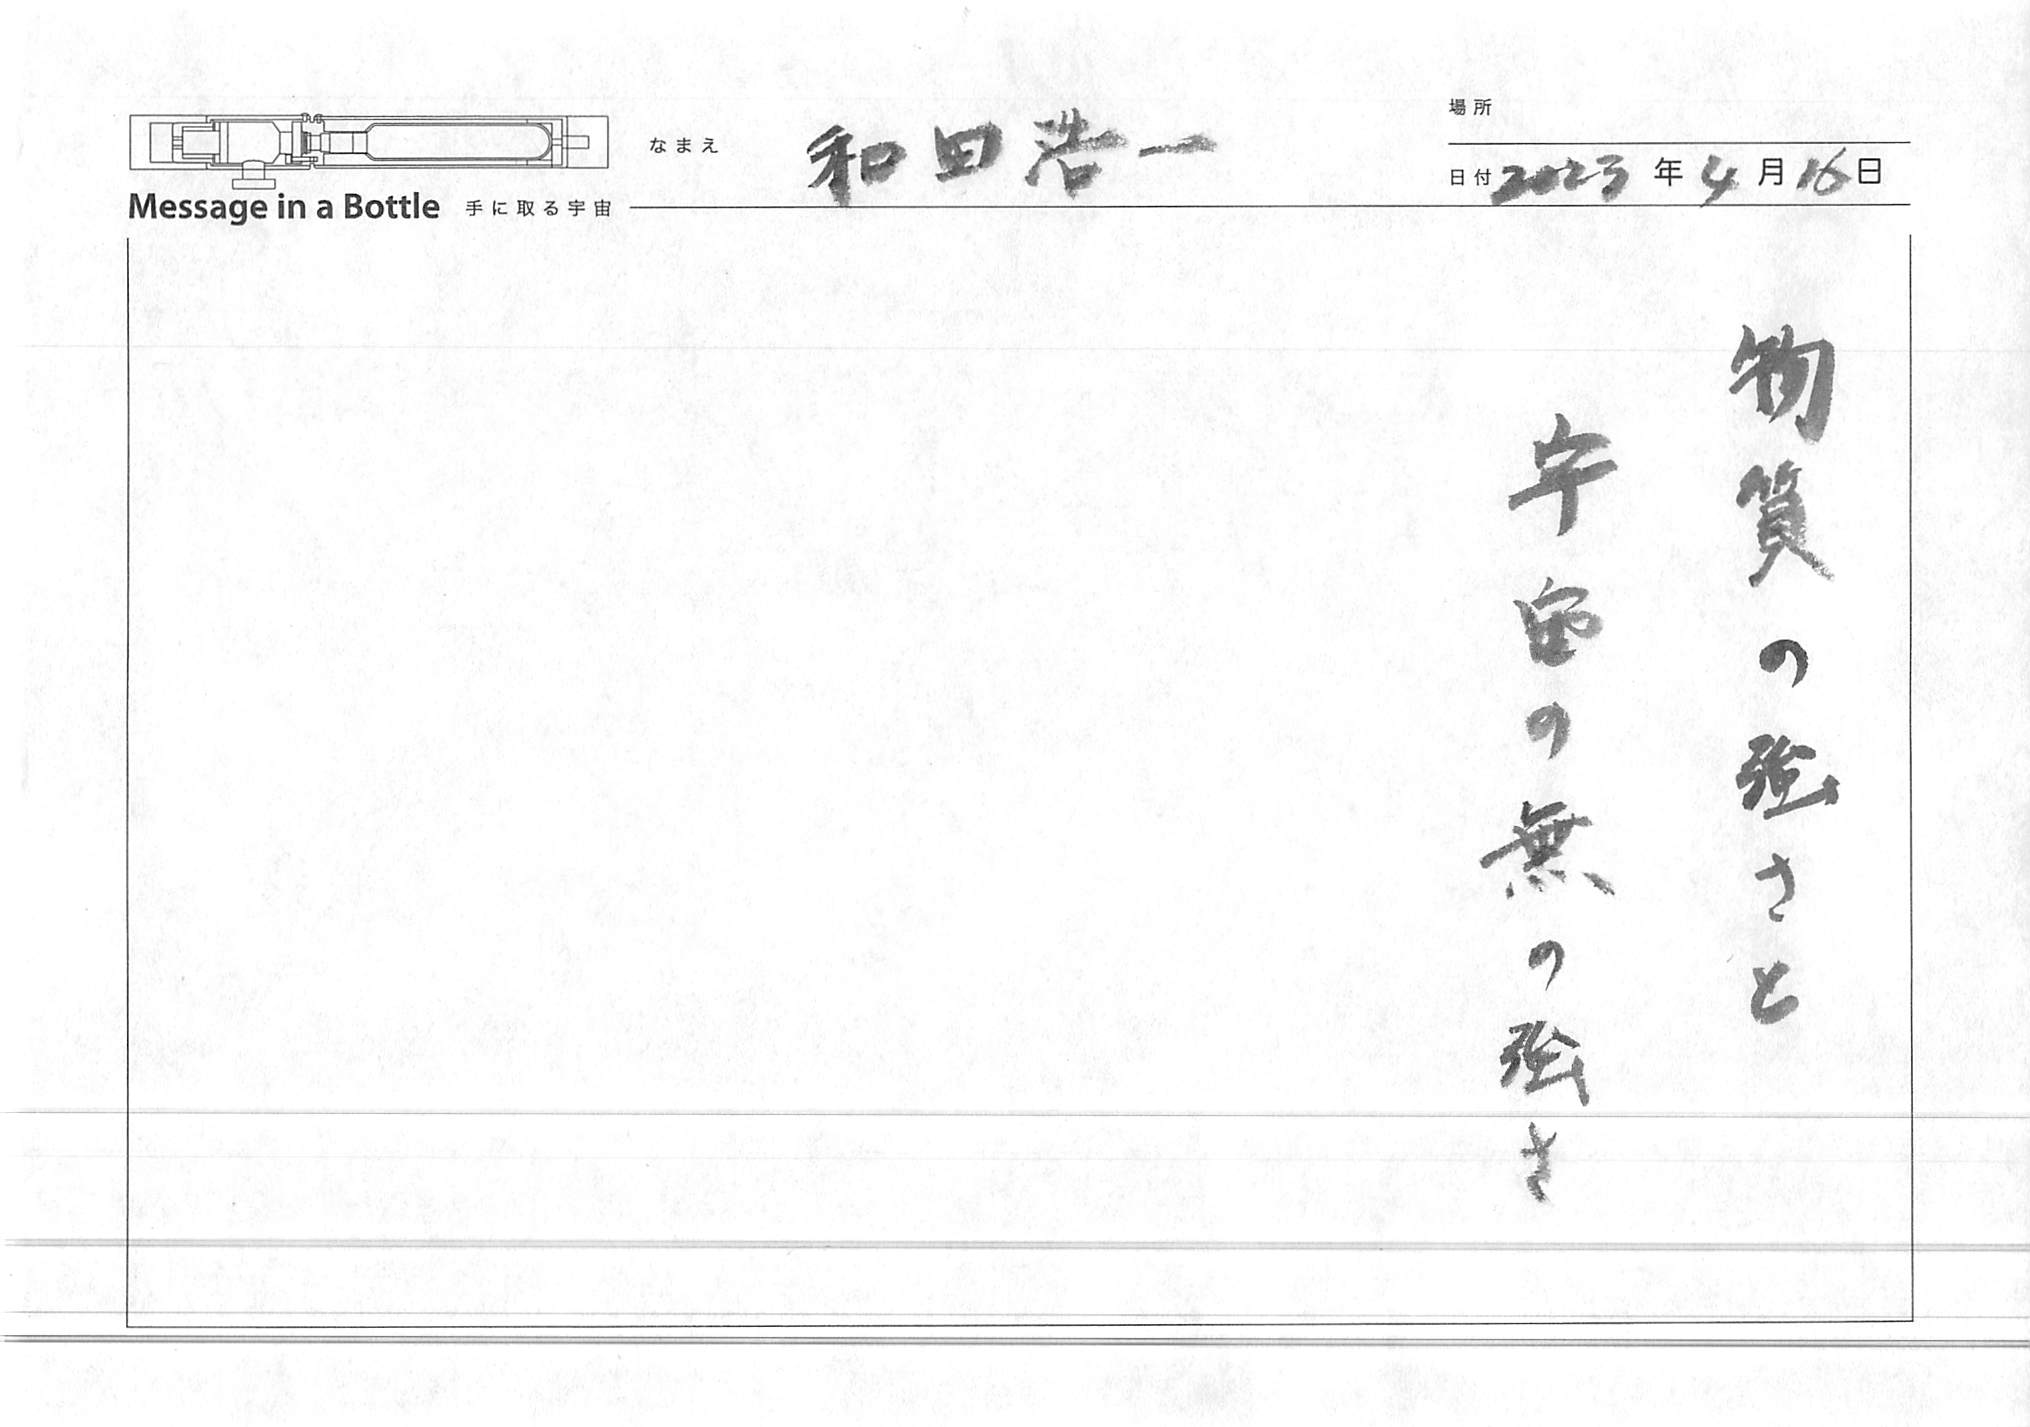 Message in a Bottle 手に取る宇宙
なまえ 和田浩一
場所
日付 2023年4月16日
物質の強さと
宇宙の無の強さ